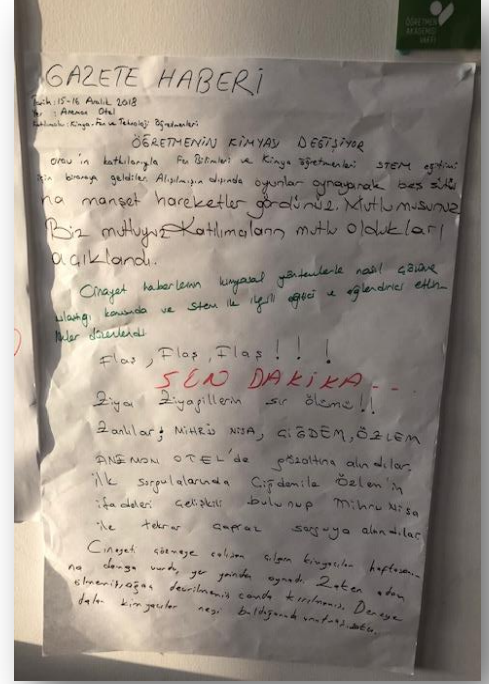 ÖĞRETMEN
AKADEMİSİ
VAKFI
GAZETE HABERİ
Tarih: 15-16 Aralık 2018
Yer : Anemon Otel
Katılımcılar: Kimya, Fen ve Teknoloji Öğretmenleri
ÖĞRETMENİN KİMYASI DEĞİŞİYOR
'in katkılarıyla Fen Bilimleri ve Kimya öğretmenleri STEM eğitimi
için biraraya geldiler. Alışılmışın dışında oyunlar oynayarak beş
na manşet hareketler gördünüz. Mutlu musunuz
Biz mutluyuz Katılımcıların mutlu oldukları
açıklandı.
Cinayet haberlerinin kimyasal yöntemlerle nasıl çözüme
ulaştığı konusunda ve stem ile ilgili eğitici ve eğlendirici etkin-
likler düzenlendi
Flaş, Flaş, Flaş ! ! !
SON DAKİKA...
Ziya Ziyagillerin sır ölümü !!
Zanlılar; MİHRÜNİSA, ÇİĞDEM, ÖZLEM
ANEMON OTEL'de gözaltına alındılar,
ilk sorgulalarında Çiğdemile Özlem'in
ifadeleri çelişkili bulunup Mihrünisa
ile tekrar çapraz sorguya alındılar
Cinayeti çözmeye çalışan çılgın kimyacılar haftasonu
na damga vurdu, yer yerinden oynadı. Zaten adam
ölmemiş, ağaç devrilmemiş camda kırılmamış. Deneye
dalan kimyacılar neyi bulduğunuda unutmuş